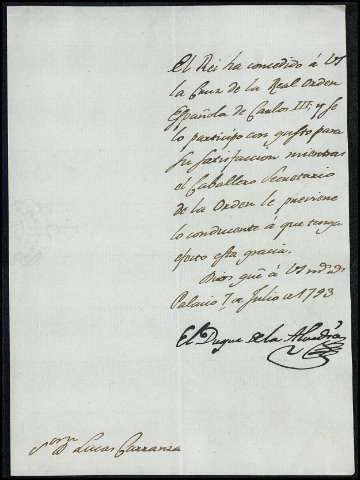 El Rei ha concedido á VS
la Cruz de la Real Orden
Española de Carlos III, y se
lo participo con gusto para
su satisfaccion mientras
el Caballero Secretario
de la Orden le previene
lo conducente á que tenga
efecto esta gracia.
Dios gue á VS ms as
Palacio 7 de Julio de 1793
El Duque de la
Sor Dn Lucas Carranza